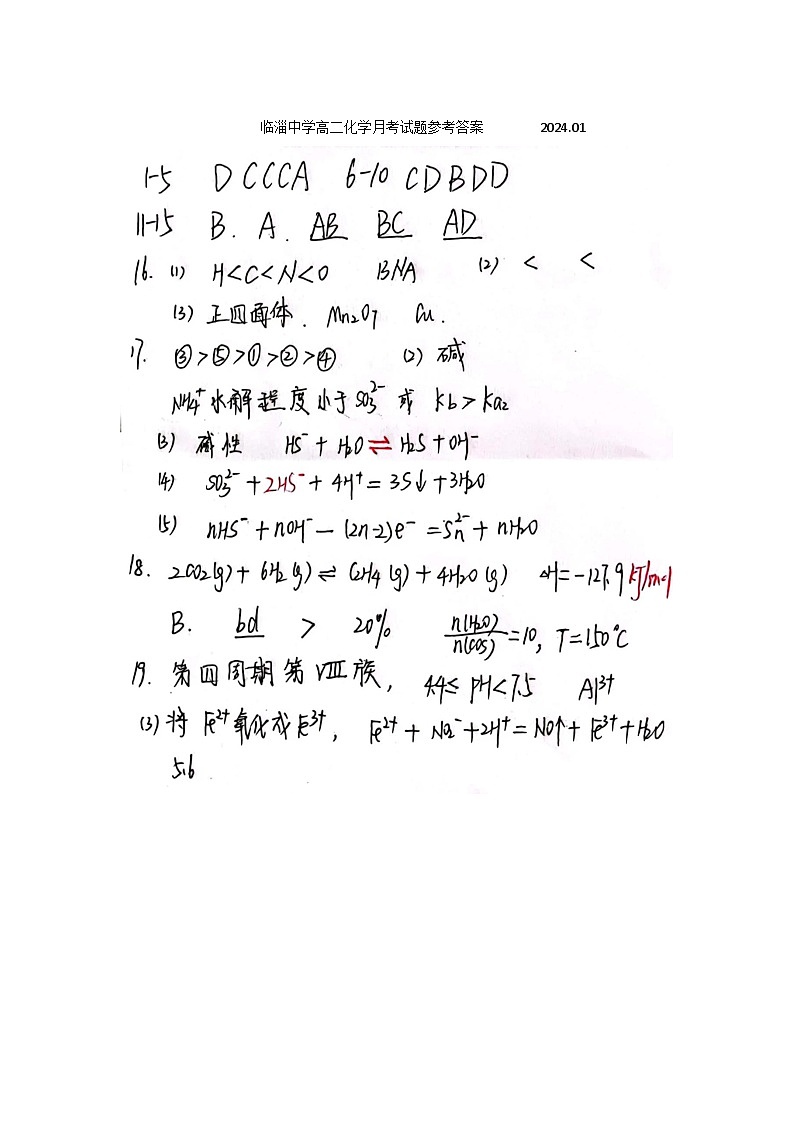 临淄中学高二化学月考试题参考答案 2024.01
1-5 DCCCA 6-10 CDBDD
11-15 B. A. AB BC AD
16. (1) H<C<N<O BNA (2) < <
(3) 正四面体. Mn₂O₇ Cu.
17. ③>⑤>①>②>④ (2) 碱
NH₄⁺水解程度小于SO₃²⁻ 或 Kb>Ka₂
(3) 碱性 HS⁻+H₂O⇌H₂S+OH⁻
(4) SO₃²⁻+2HS⁻+4H⁺=3S↓+3H₂O
(5) nHS⁻+nOH⁻-(2n-2)e⁻=Sn²⁻+nH₂O
18. 2CO₂(g)+6H₂(g)⇌C₂H₄(g)+4H₂O(g) ΔH=-127.9kJ/mol
B. bd > 20% n(H₂O)/n(COS)=10, T=150℃
19. 第四周期第Ⅷ族, 4.4≤pH<7.5 Al³⁺
(3) 将Fe²⁺氧化成Fe³⁺, Fe²⁺+NO₂⁻+2H⁺=NO↑+Fe³⁺+H₂O
5.6